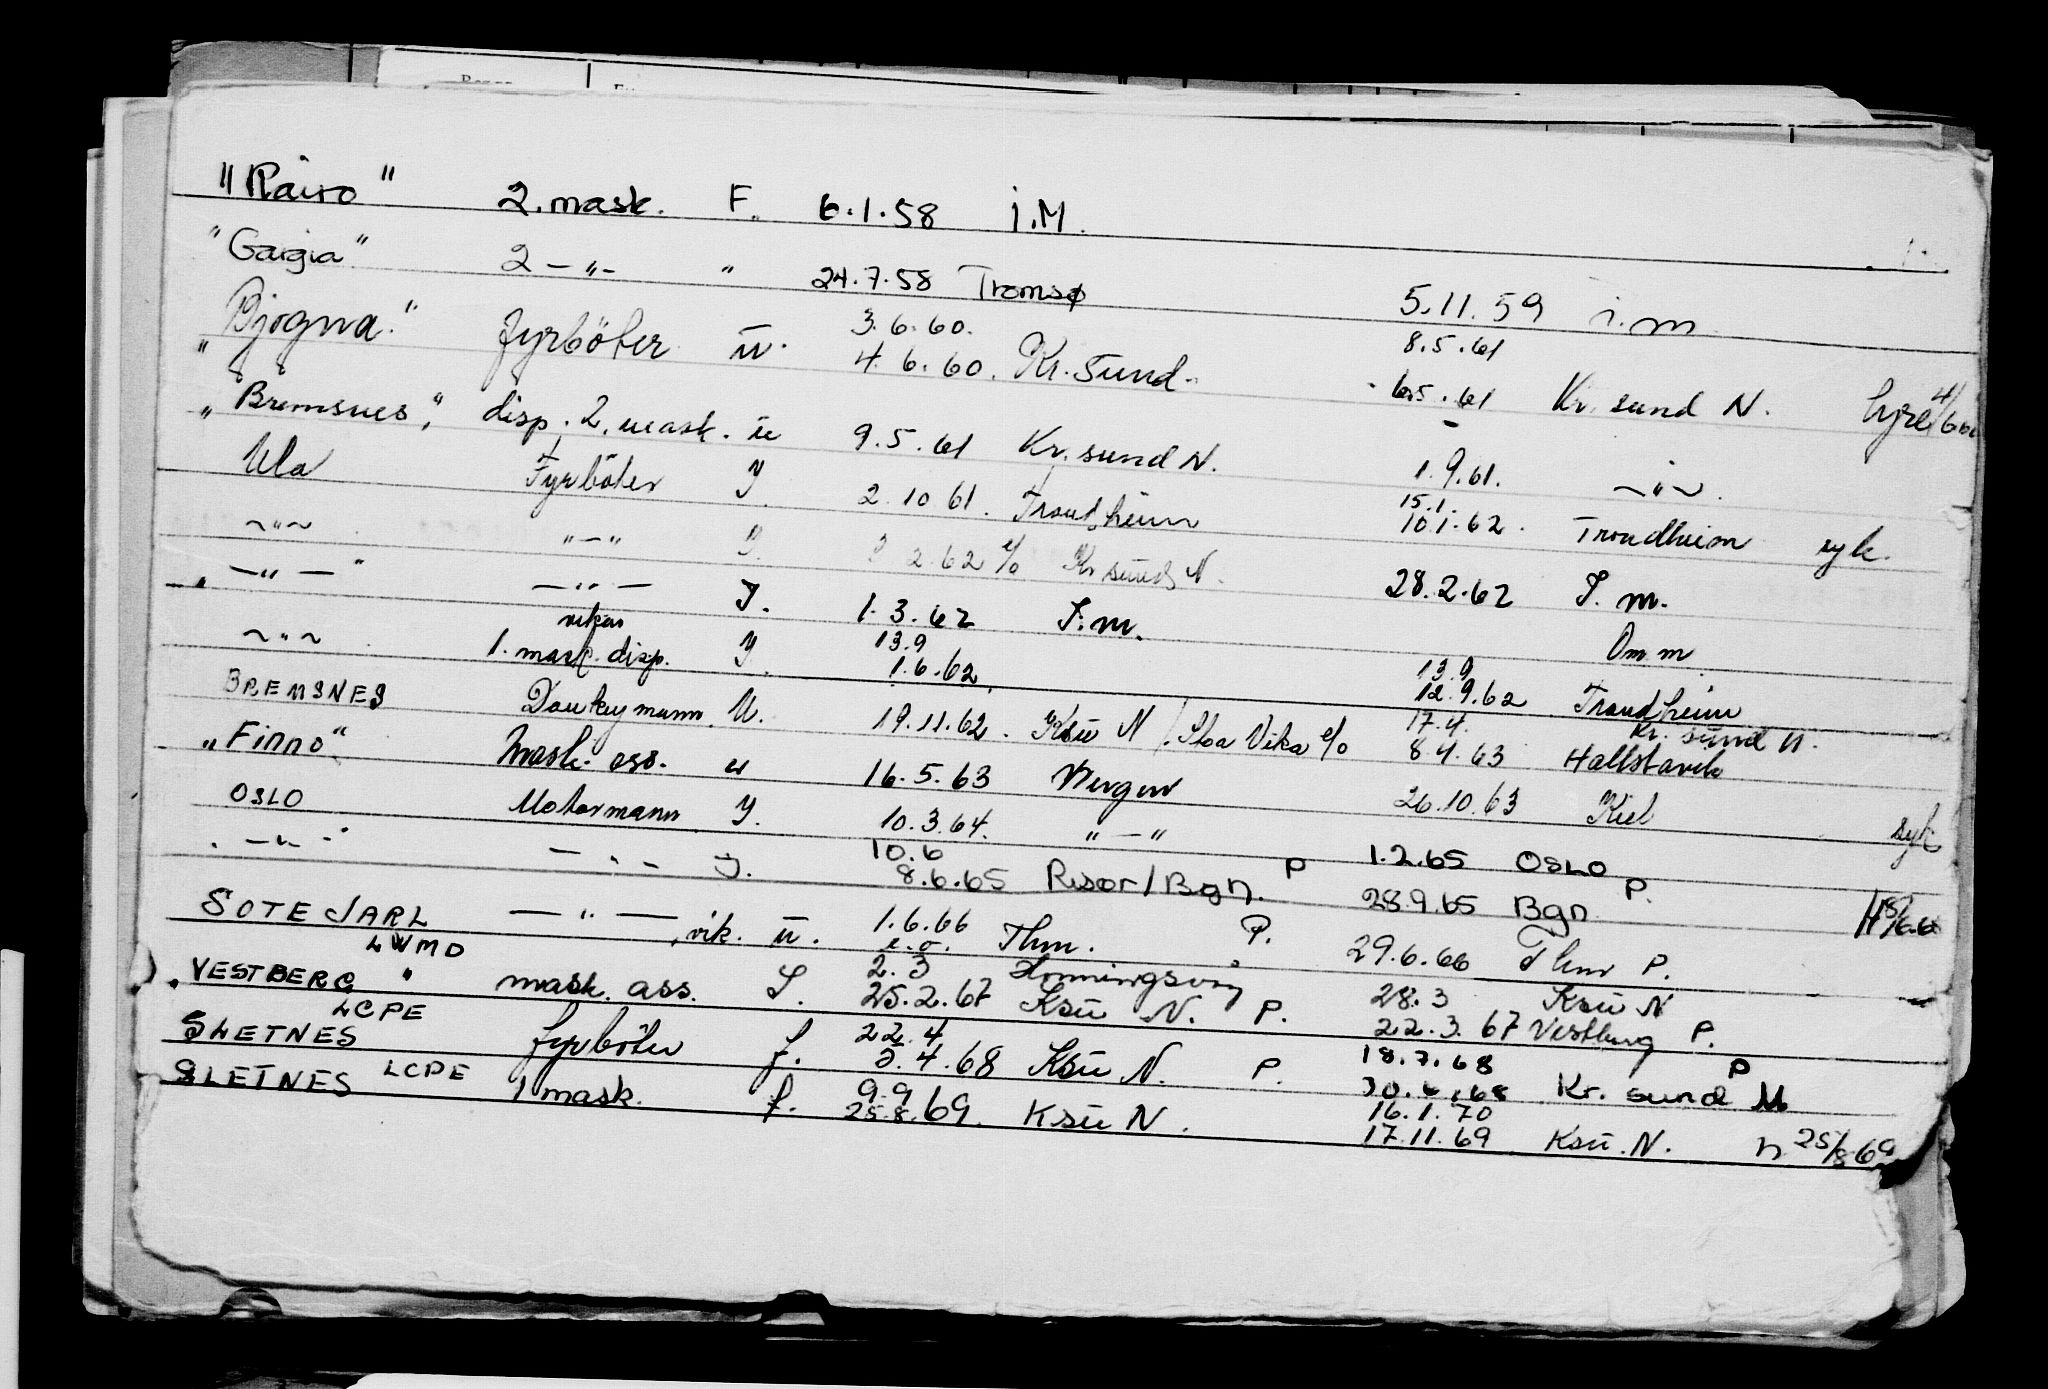 "Rairo" 2. mask. F. 6.1.58 i.M.
"Gargia" 2 -"- " 24.7.58 Tromsø 5.11.59 i.m
3.6.60. 8.5.61
"Bjogna" fyrböter ū. 4.6.60. Kr. Sund. 6.5.61 Kr. sund N. hyre 4/6 60
"Bremsnes", disp. 2. mask. ū 9.5.61 Kr. sund N. 1.9.61. -"-
Ula Fyrböter J. 2.10 61. Trondheim 15.1. 10.1.62. Trondheim syk.
-"- "-" J. 2.62 e/o Kr sund N. 28.2.62 I. m.
"-"-" -"- J. 1.3.62 I.m. Om m
vikar 13.9 13.9
-"- 1. mask. disp. J. 1.6.62. 12.9.62 Trondheim
17.4. Kr. sund N.
BREMSNES Donkeymann U. 19.11.62. Ksū N / Vika e/o 8.4.63 Hallstavik
"Finno" Mask. ass. u 16.5.63 Bergen 26.10.63 Kiel syk
OSLO Motormann J. 10.3.64. "-" 1.2.65 OSLO
10.6 P
-"- -"- J. 8.6.65 Risør/Bgn. 28.9.65 Bgn P.
SOTE JARL -"-, vik. ū. 1.6.66 Thm. P. 29.6.66 Thm P.
LWMD e.o.
2.3 Honningsvåg 28.3 Ksū N
"VESTBERG" mask. ass. J. 25.2.67 Ksū N. P. 22.3.67 Vestberg P.
LCPE 22.4 18.7.68 P
SLETNES fyrböter f. 5.4.68 Ksū N. P. 30.6.68 Kr. sund N
LCPE 9.9 16.1.70
SLETNES 1 mask. f. 25.8.69. Ksū N. 17.11.69 Ksū. N. n 25/8 69